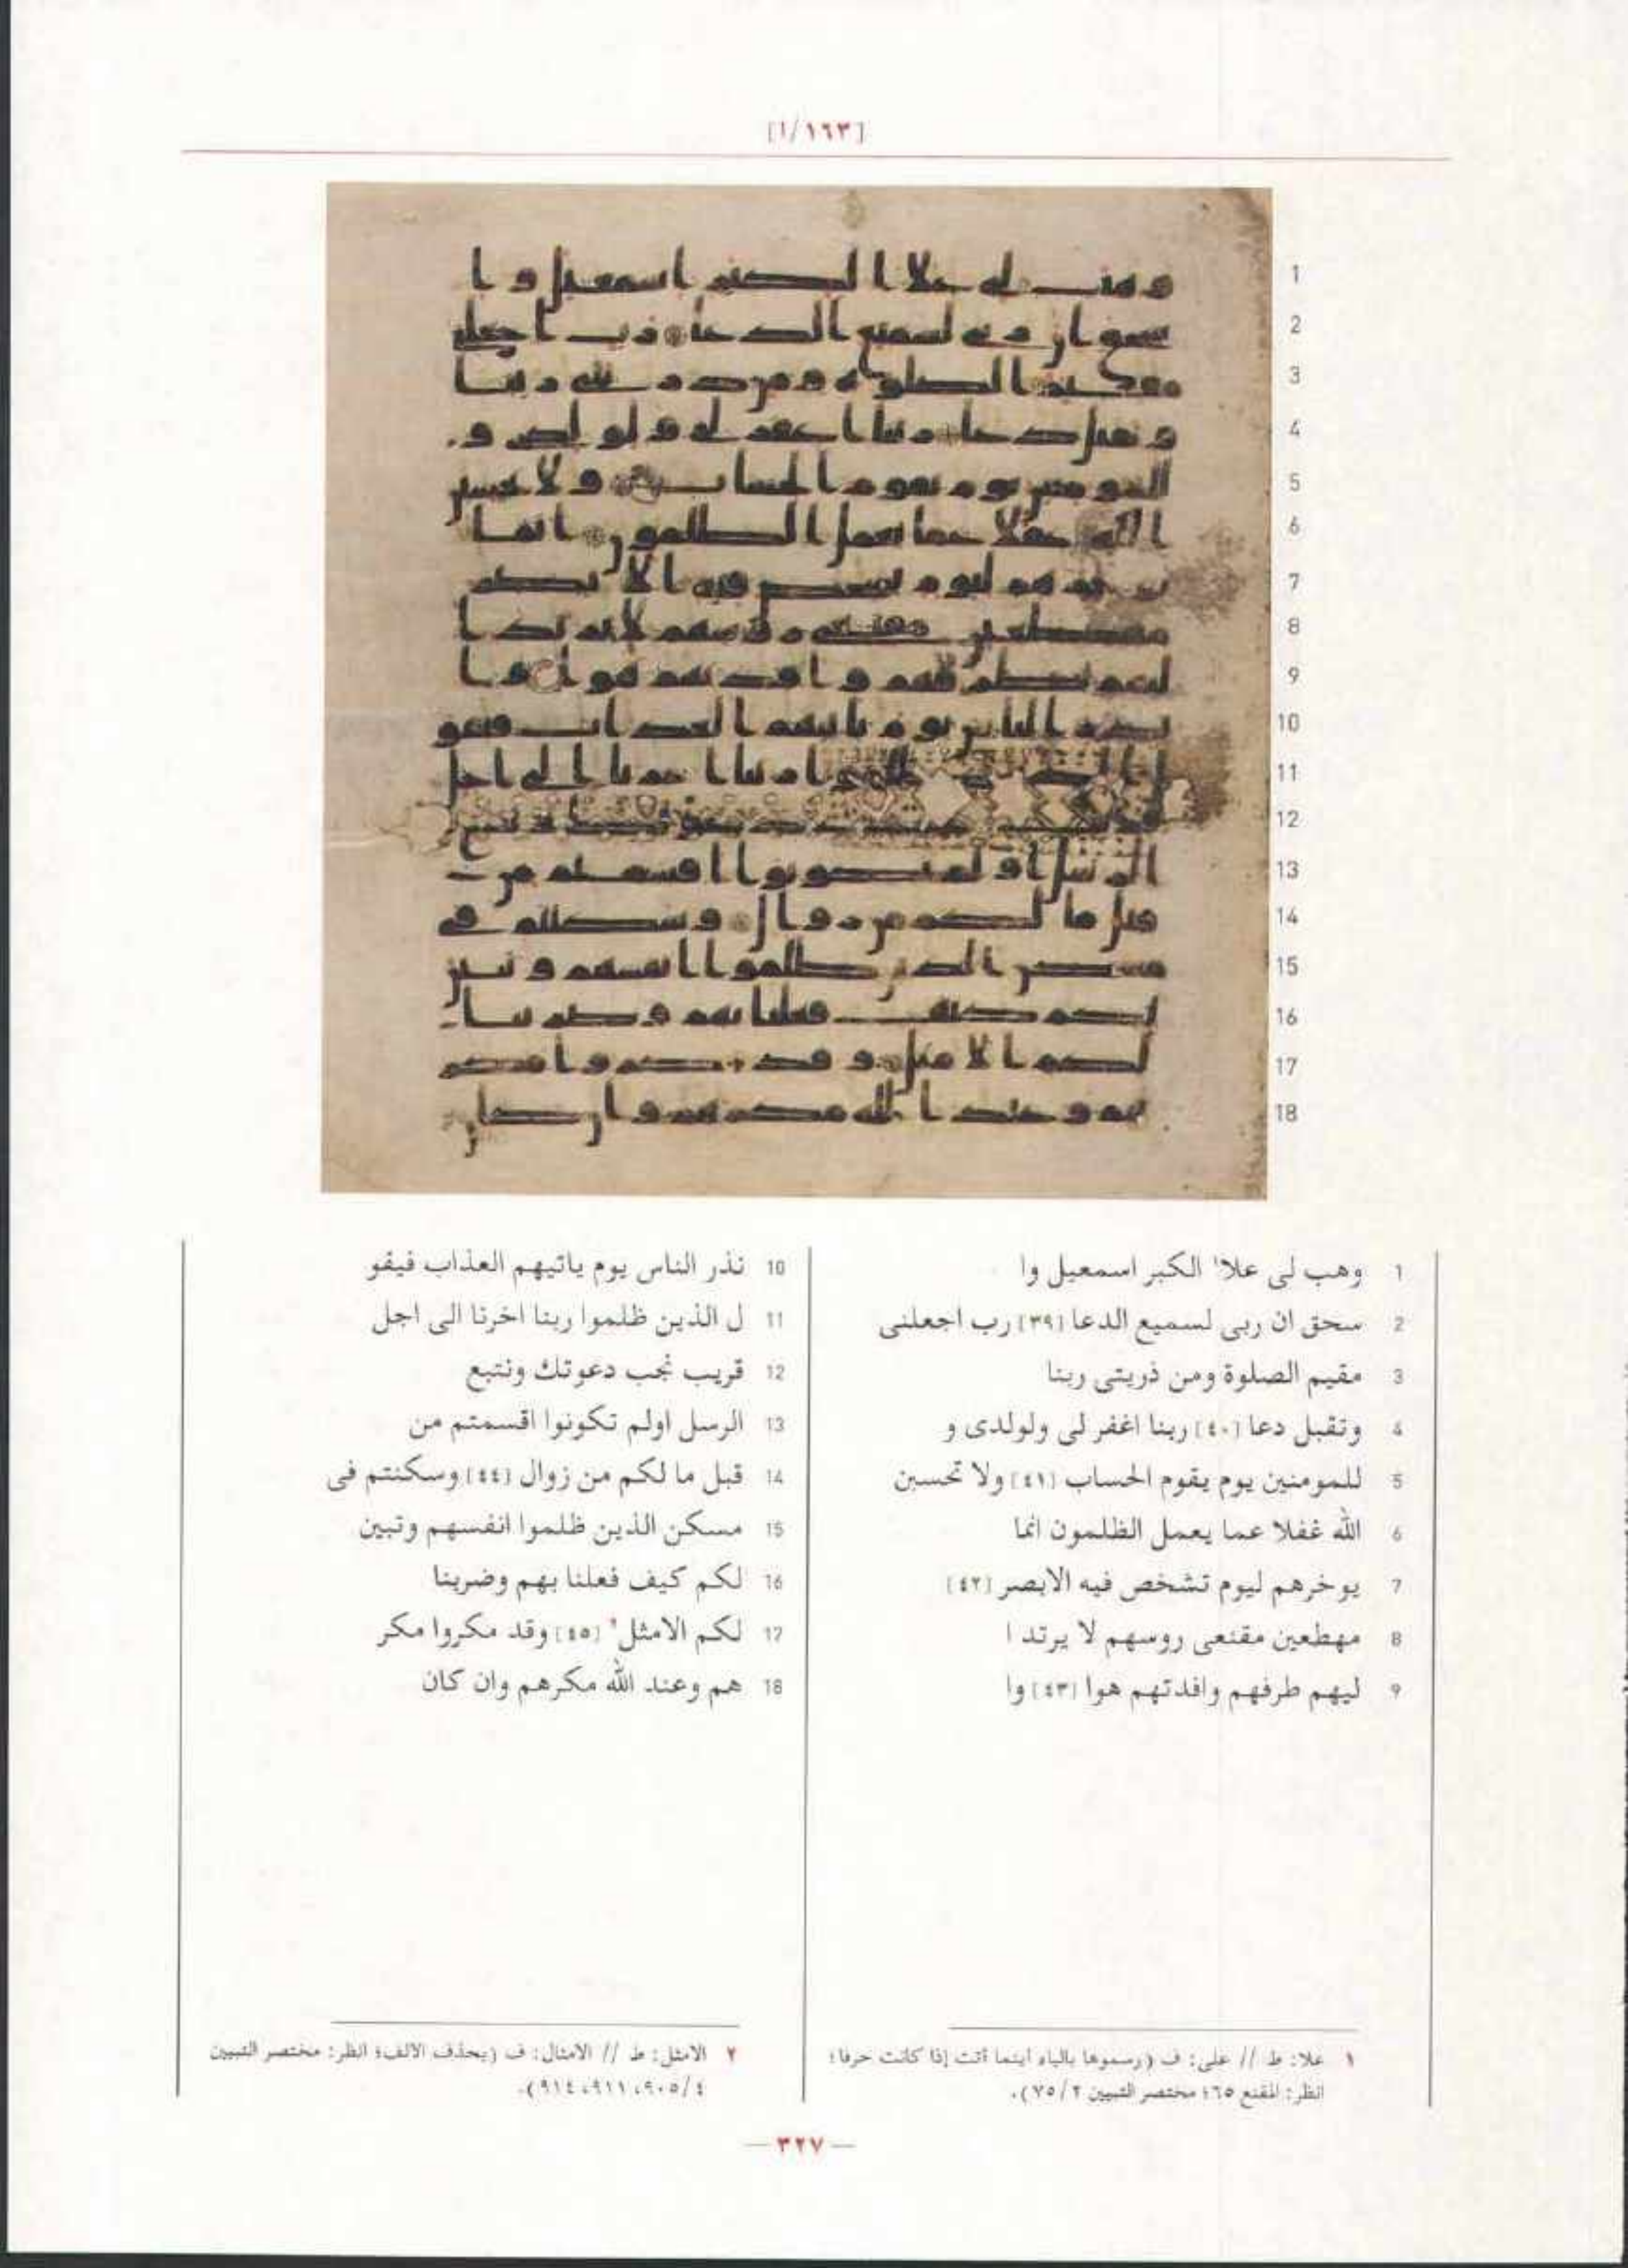 [١٦٣/ا]
1 وهب لى علا١ الكبر اسمعيل وا
2 سحق ان ربى لسميع الدعا [٣٩] رب اجعلنى
3 مقيم الصلوة ومن ذريتى ربنا
4 وتقبل دعا [٤٠] ربنا اغفر لى ولولدى و
5 للمومنين يوم يقوم الحساب [٤١] ولا تحسبن
6 الله غفلا عما يعمل الظلمون انما
7 يوخرهم ليوم تشخص فيه الابصر [٤٢]
8 مهطعين مقنعى روسهم لا يرتد ا
9 ليهم طرفهم وافدتهم هوا [٤٣] وا
10 نذر الناس يوم ياتيهم العذاب فيقو
11 ل الذين ظلموا ربنا اخرنا الى اجل
12 قريب نجب دعوتك ونتبع
13 الرسل اولم تكونوا اقسمتم من
14 قبل ما لكم من زوال [٤٤] وسكنتم فى
15 مسكن الذين ظلموا انفسهم وتبين
16 لكم كيف فعلنا بهم وضربنا
17 لكم الامثل٢ [٤٥] وقد مكروا مكر
18 هم وعند الله مكرهم وان كان
١ علا: ط // على: ف (رسموها بالياء أينما أتت إذا كانت حرفا؛
انظر: المقنع ٦٥؛ مختصر التبيين ٧٥/٢).
٢ الامثل: ط // الامثال: ف (بحذف الالف؛ انظر: مختصر التبيين
٩٠٥/٤، ٩١١، ٩١٤).
— ٣٢٧ —